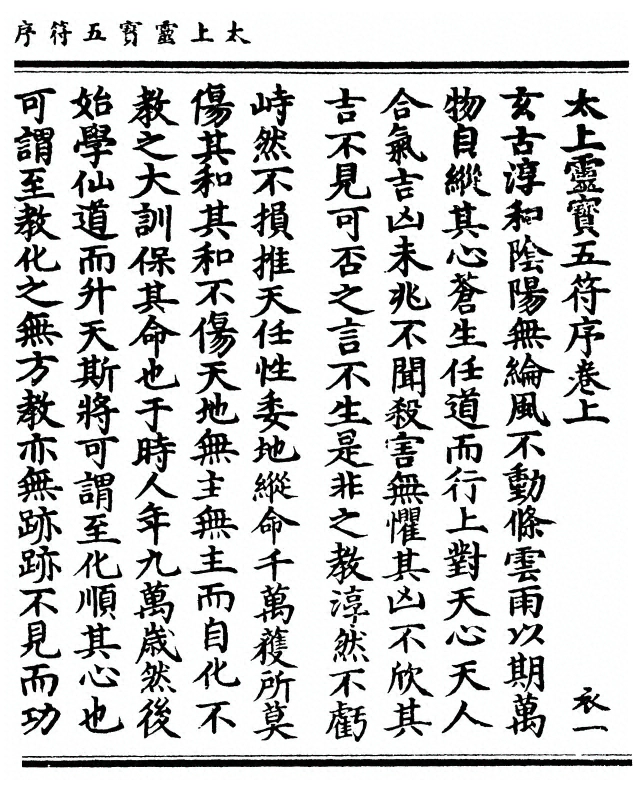 太上靈寳五符序
太上靈寳五符序卷上　衣一
玄古淳和陰陽無綸風不動條雲雨以期萬
物自縱其心蒼生任道而行上對天心天人
合氣吉凶未兆不聞殺害無懼其凶不欣其
吉不見可否之言不生是非之教淳然不虧
峙然不損推天任性委地縱命千萬蒦所莫
傷其和其和不傷天地無主無主而自化不
教之大訓保其命也于時人年九萬歲然後
始學仙道而升天斯將可謂至化順其心也
可謂至教化之無方教亦無跡跡不見而功